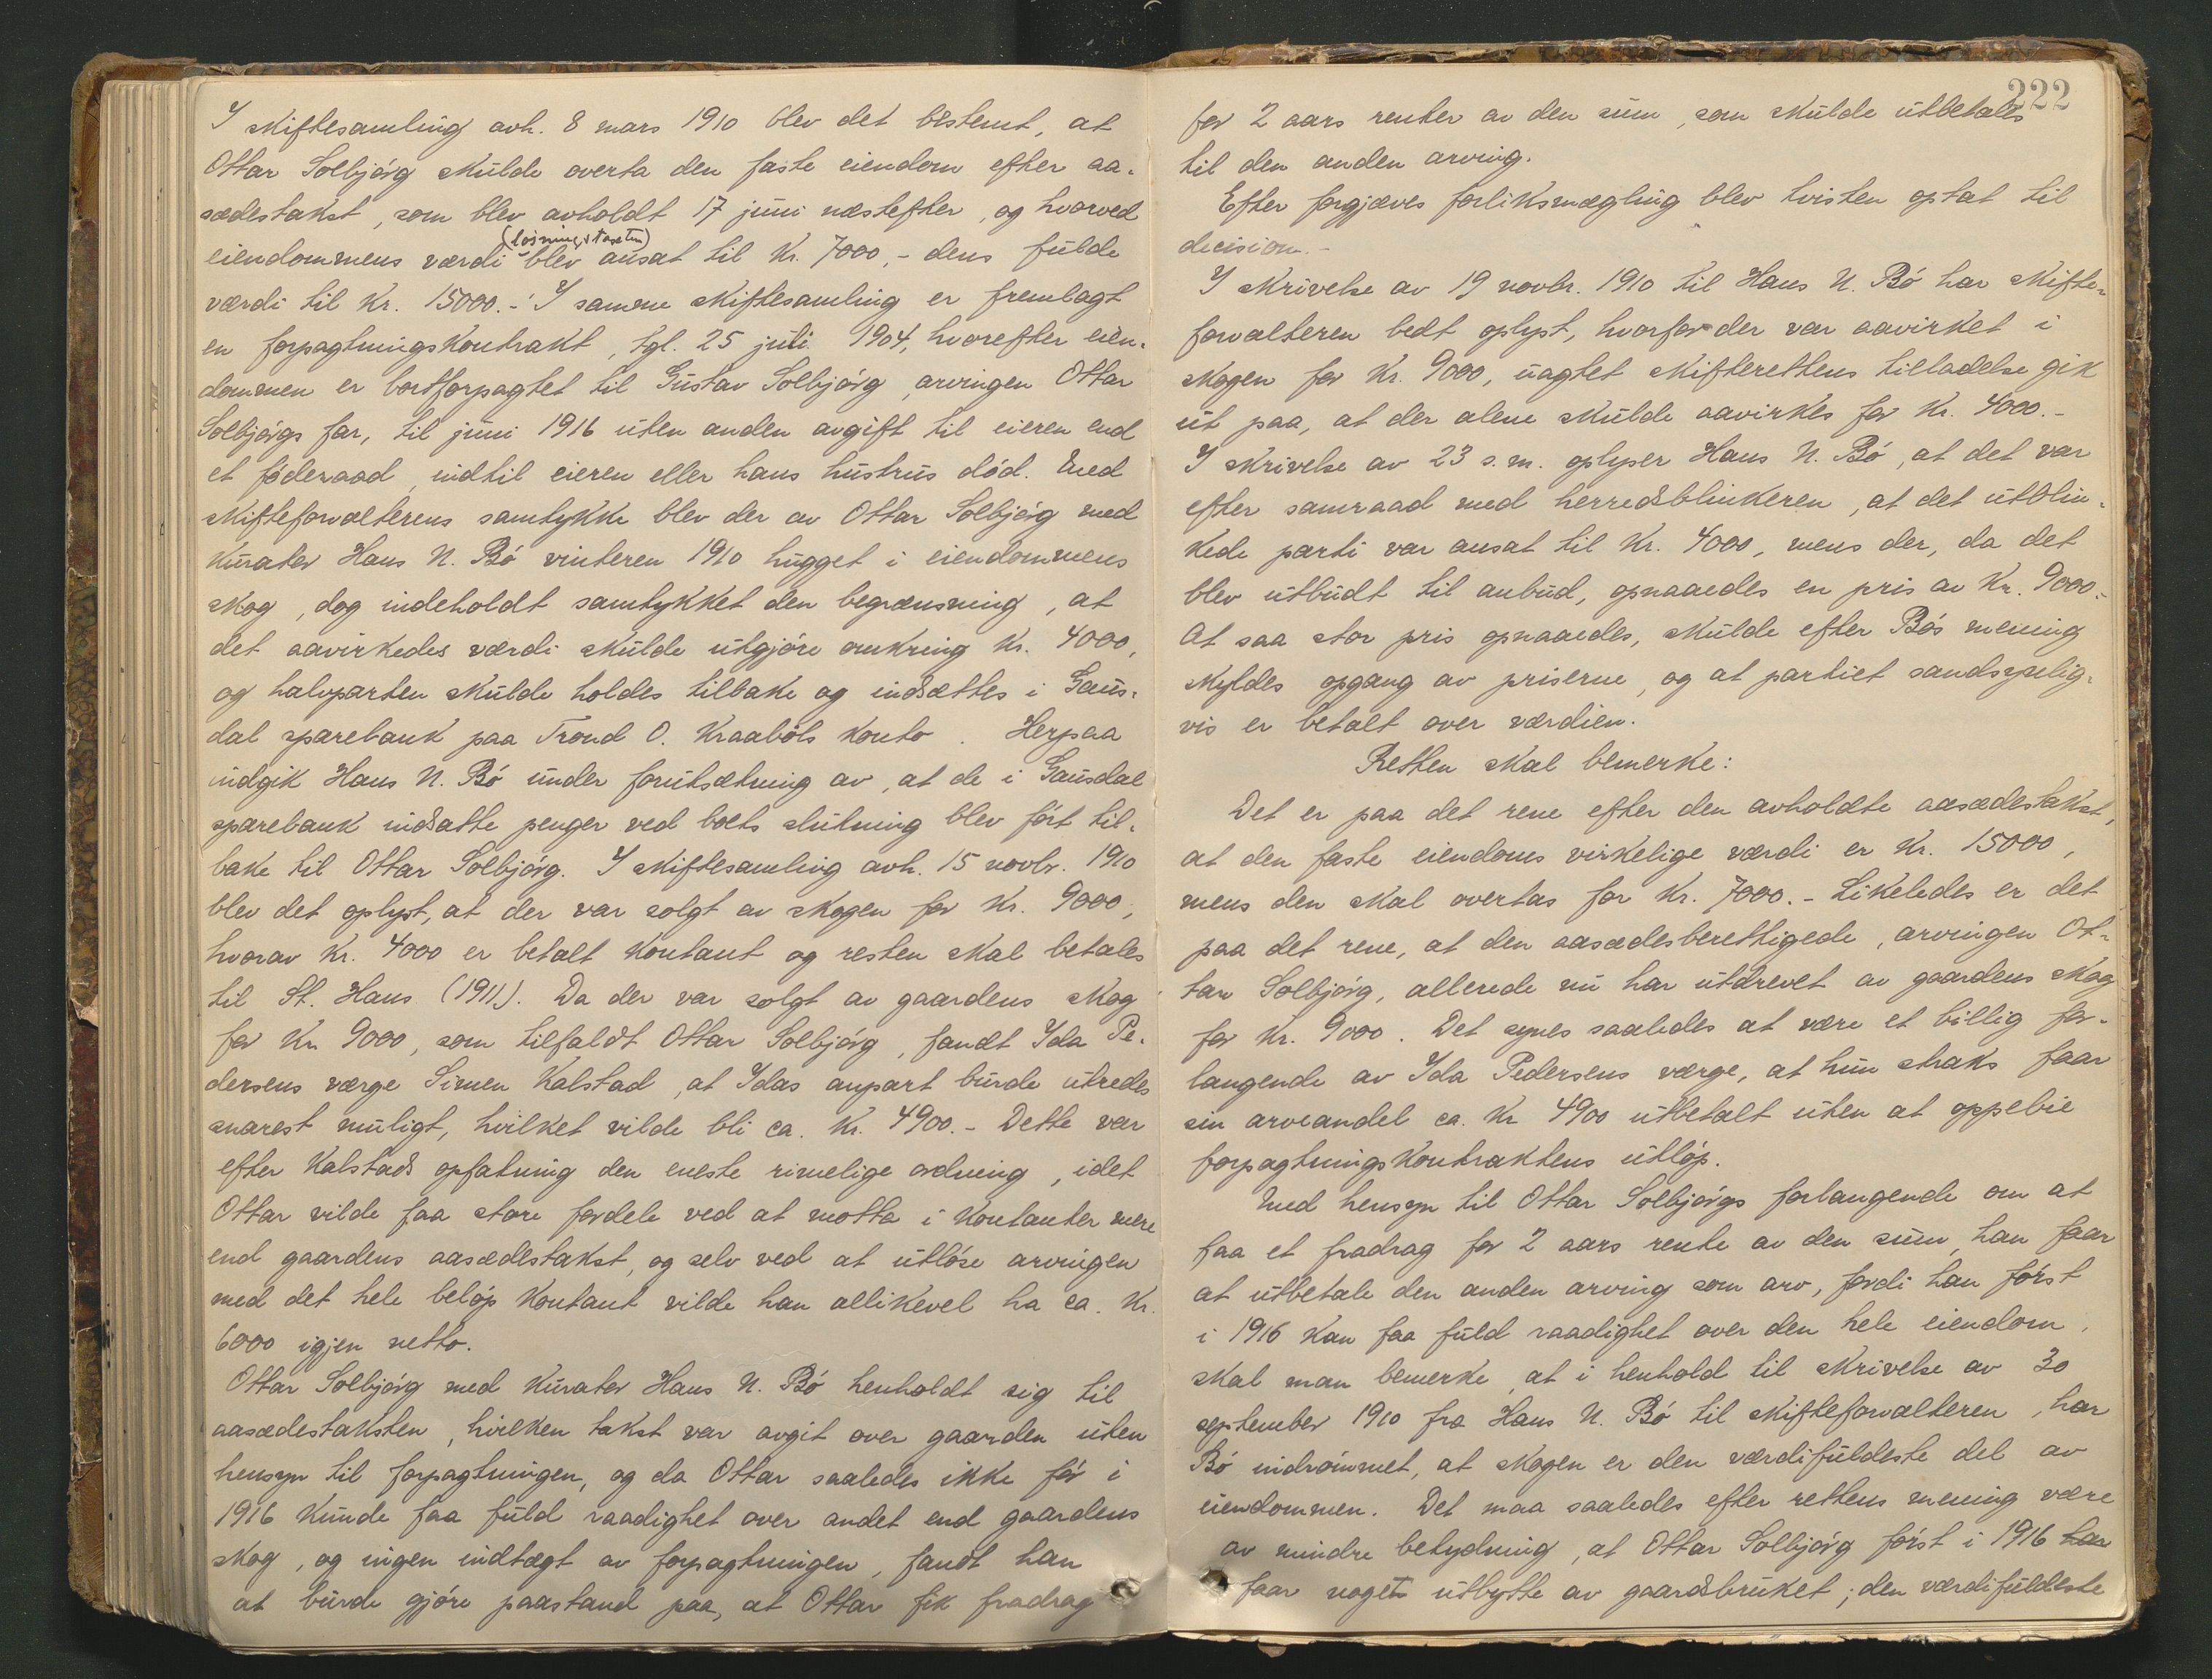 I skiftesamling avh. 8 mars 1910 blev det bestemt, at
Ottar Solbjørg skulde overta den faste eiendom efter aa-
sædestakst, som blev avholdt 17 juni næstefter, og hvorved
(løsningstaxten)
eiendommens værdi blev ansat til Kr. 7000,- dens fulde
værdi til Kr. 15000.- I samme skiftesamling er fremlagt
en forpagtningskontrakt, tgl. 25 juli 1904, hvorefter eien-
dommen er bortforpagtet til Gustav Solbjørg, arvingen Ottar
Solbjørgs far, til juni 1916 uten anden avgift til eieren end
et føderaad, indtil eieren eller hans hustrus død. Med
skifteforvalterens samtykke blev der av Ottar Solbjørg med
kurator Hans N. Bø vinteren 1910 hugget i eiendommens
skog, dog indeholdt samtykket den begrænsning, at
det aavirkedes værdi skulde utgjøre omkring Kr. 4000,
og halvparten skulde holdes tilbake og indsættes i Gaus-
dal sparebank paa Trond O. Kraabøls konto. Herpaa
indgik Hans N. Bø under forutsætning av, at de i Gausdal
sparebank indsatte penger ved boets slutning blev ført til-
bake til Ottar Solbjørg. I skiftesamling avh. 15 novbr. 1910
blev det oplyst, at der var solgt av skogen for Kr. 9000,
hvorav Kr. 4000 er betalt kontant og resten skal betales
til St. Hans (1911). Da der var solgt av gaardens skog
for Kr 9000, som tilfaldt Ottar Solbjørg, fandt Ida Pe-
dersens værge Simen Kalstad, at Idas anpart burde utredes
snarest muligt, hvilket vilde bli ca. Kr. 4900.- Dette var
efter Kalstads opfatning den eneste rimelige ordning, idet
Ottar vilde faa store fordele ved at motta i kontanter mere
end gaardens aasædestakst, og selv ved at utløse arvingen
med det hele beløp kontant vilde han allikevel ha ca. Kr.
6000 igjen netto.
Ottar Solbjørg med kurator Hans N. Bø henholdt sig til
aasædestaksten, hvilken takst var avgit over gaarden uten
hensyn til forpagtningen, og da Ottar saaledes ikke før i
1916 kunde faa fuld raadighet over andet end gaardens
skog, og ingen indtægt av forpagtningen, fandt han
at burde gjøre paastand paa, at Ottar fik fradrag
222
for 2 aars renter av den sum, som skulde utbetales
til den anden arving.
Efter forgjæves forliksmægling blev tvisten optat til
decision.-
I skrivelse av 19 novbr. 1910 til Hans N. Bø har skifte-
forvalteren bedt oplyst, hvorfor der var aavirket i
skogen for Kr. 9000, uagtet skifterettens tilladelse gik
ut paa, at der alene skulde aavirkes for Kr. 4000.-
I skrivelse av 23 s.m. oplyser Hans N. Bø, at det var
efter samraad med herredsblinkeren, at det utblin-
kede parti var ansat til Kr. 4000, mens der, da det
blev utbudt til anbud, opnaaedes en pris av Kr. 9000.-
At saa stor pris opnaaedes, skulde efter Bøs mening
skyldes opgang av priserne, og at partiet sandsynlig-
vis er betalt over værdien.
Retten skal bemerke:
Det er paa det rene efter den avholdte aasædestakst,
at den faste eiendoms virkelige værdi er Kr. 15000,
mens den skal overtas for Kr. 7000.- Likeledes er det
paa det rene, at den aasædesberettigede, arvingen Ot-
tar Solbjørg, allerede nu har utdrevet av gaardens skog
for Kr. 9000. Det synes saaledes at være et billig for-
langende av Ida Pedersens værge, at hun straks faar
sin arveandel ca. Kr 4900 utbetalt uten at oppebie
forpagtningskontraktens utløp.
Med hensyn til Ottar Solbjørgs forlangende om at
faa et fradrag for 2 aars rente av den sum, han faar
at utbetale den anden arving som arv, fordi han først
i 1916 kan faa fuld raadighet over den hele eiendom,
skal man bemerke, at i henhold til skrivelse av 30
september 1910 fra Hans N. Bø til skifteforvalteren, har
Bø indrømmet, at skogen er den værdifuldeste del av
eiendommen. Det maa saaledes efter rettens mening være
av mindre betydning, at Ottar Solbjørg først i 1916 har
faar noget utbytte av gaardsbruket; den værdifuldeste